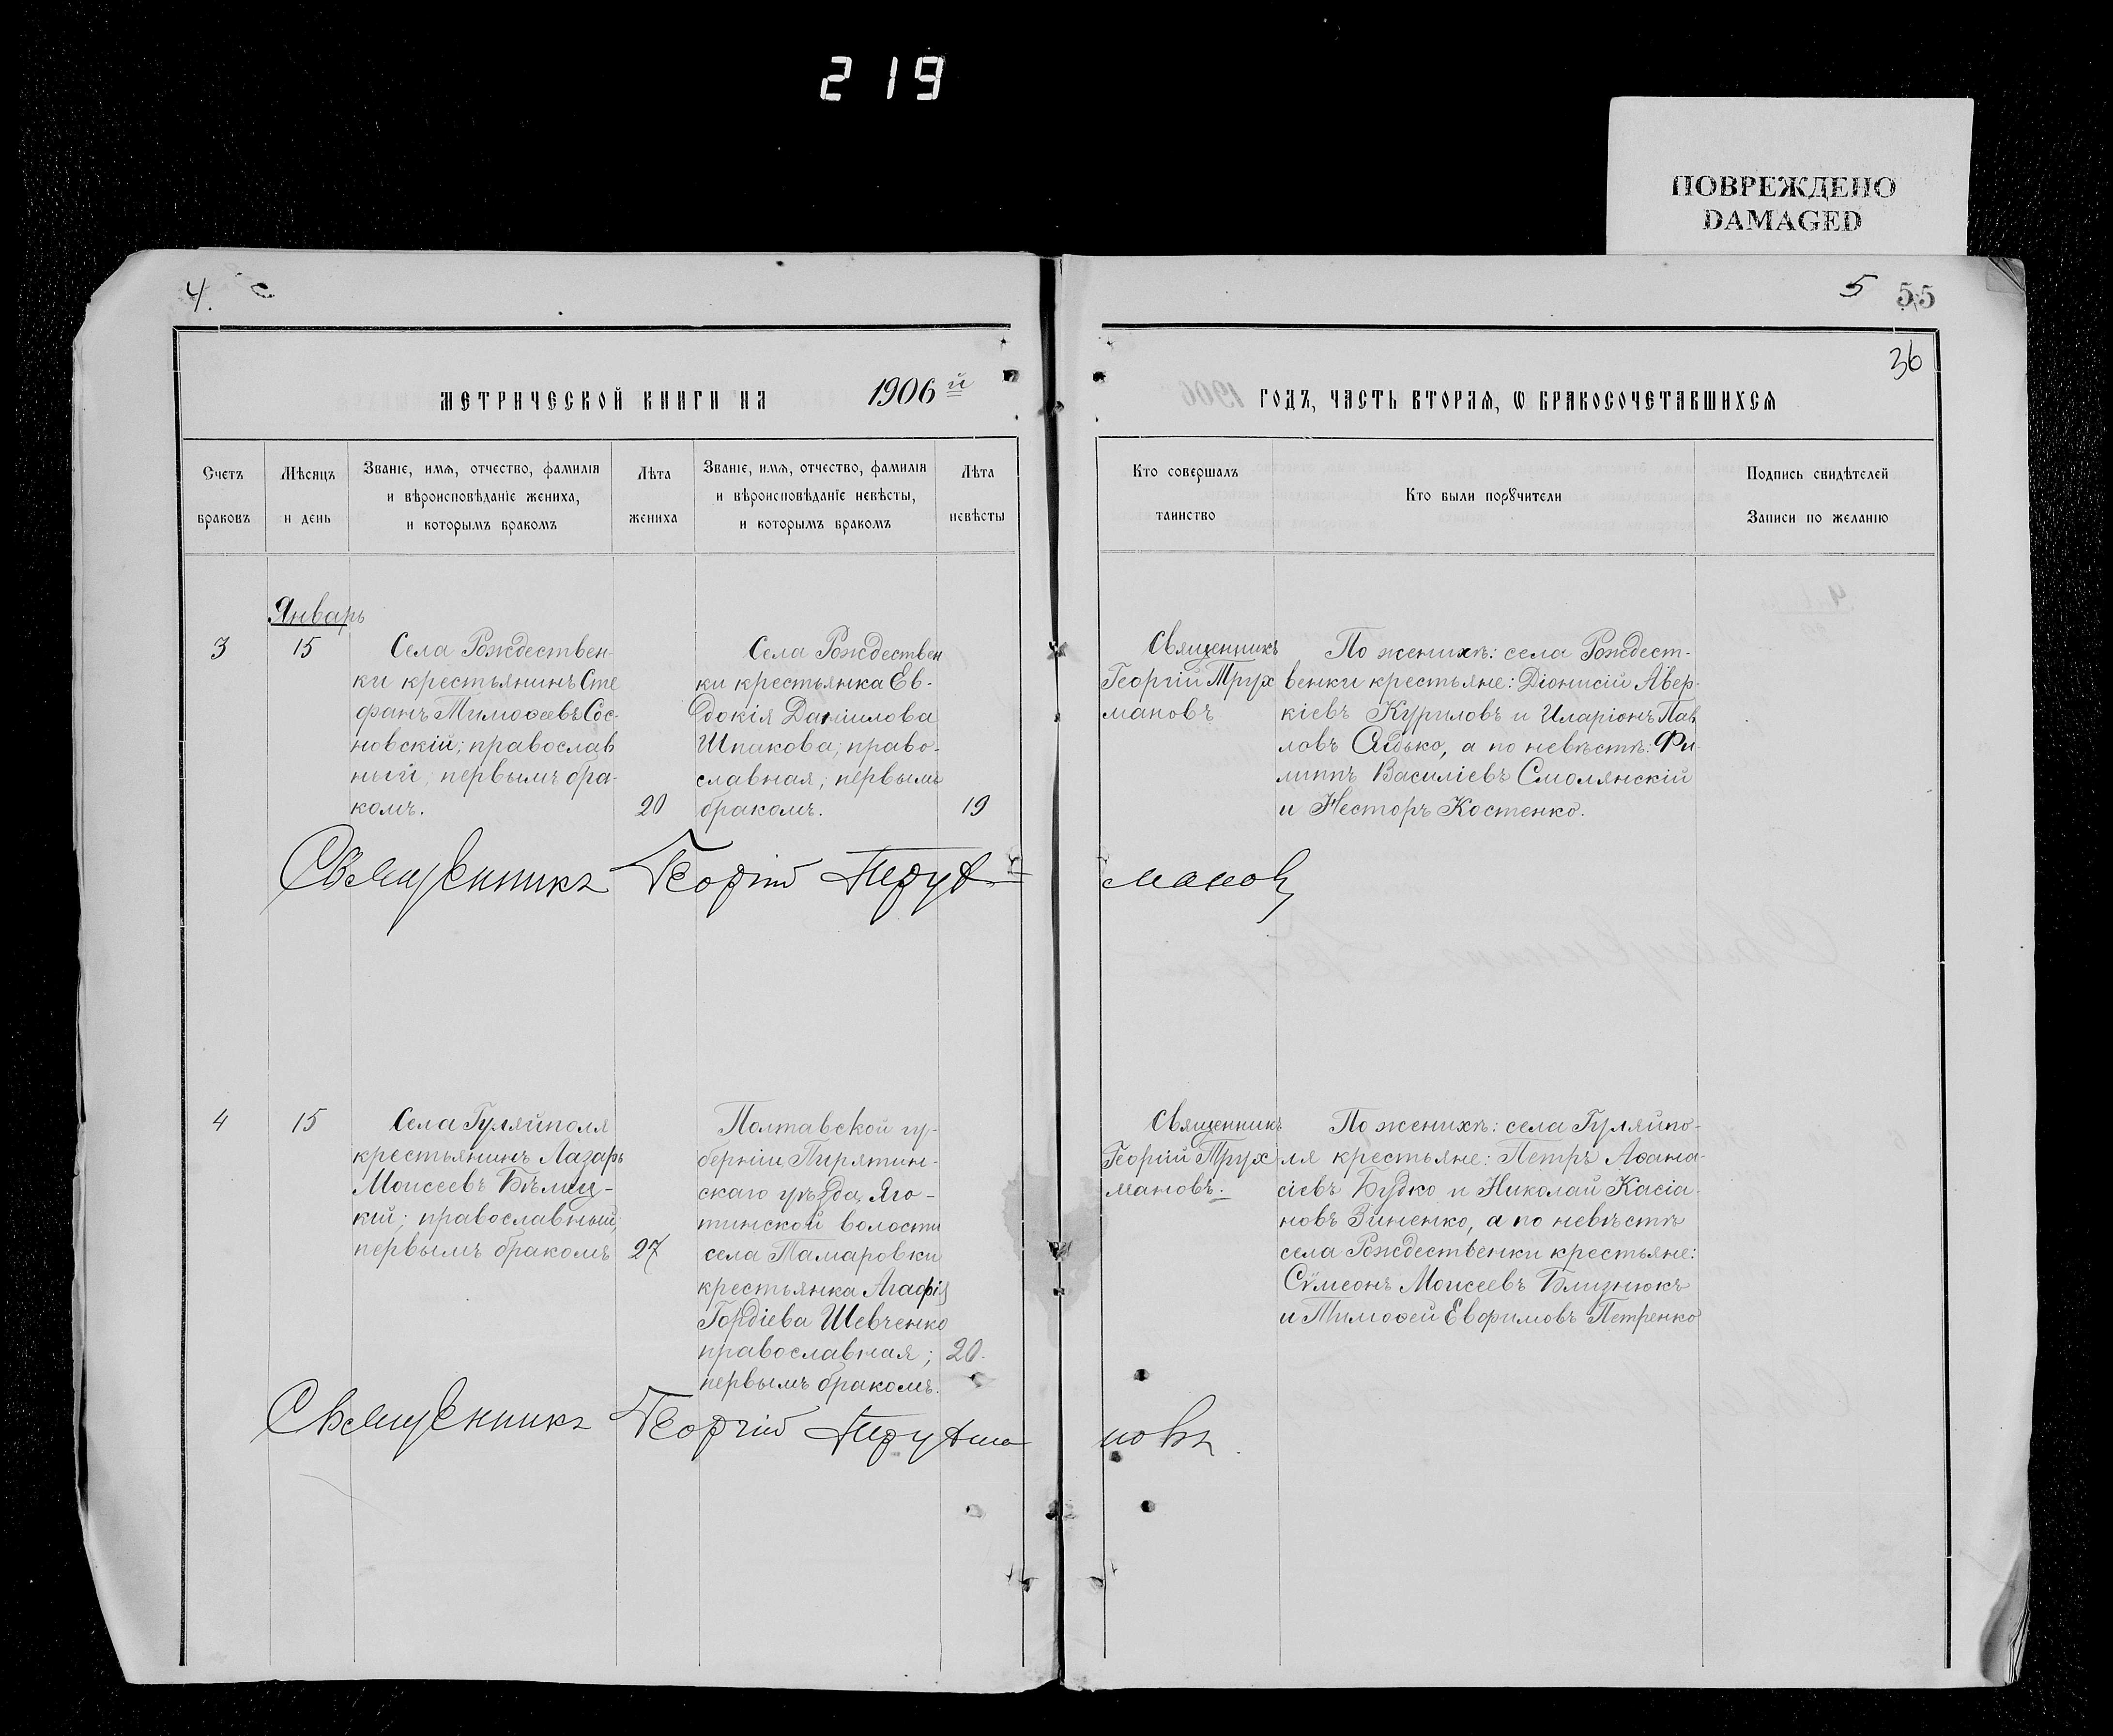 219
ПОВРЕЖДЕНО
DAMAGED
4.
5 55
36
МЕТРИЧЕСКОЙ КНИГИ НА 1906й
ГОДЪ, ЧАСТЬ ВТОРАЯ, Ѡ БРАКОСОЧЕТАВШИХСЯ
Счетъ браковъ
Мѣсяцъ и день
Званіе, имя, отчество, фамилія
и вѣроисповѣданіе жениха,
и которымъ бракомъ
Лѣта жениха
Званіе, имя, отчество, фамилія
и вѣроисповѣданіе невѣсты,
и которымъ бракомъ
Лѣта невѣсты
Кто совершалъ
таинство
Кто были порꙋчители
Подпись свидѣтелей
Записи по желанію
Январь
3
15
Села Рождествен-
ки крестьянинъ Сте
фанъ Тимоѳеевъ Сос-
новскій; православ
ный, первымъ бра-
комъ.
20
Села Рождествен
ки крестьянка Ев-
докія Даніилова
Шпакова; право-
славная; первымъ
бракомъ.
19
Священникъ
Георгій Трух
мановъ
По женихѣ: села Рождест-
венки крестьяне: Діонисій Авер-
кіевъ Куриловъ и Иларіонъ Пав
ловъ Сидько, а по невѣстѣ: Фи-
липпъ Василіевъ Смолянскій
и Несторъ Костенко.
Священникъ Георгій Трухмановъ
4
15
Села Гуляйполя
крестьянинъ Лазарь
Моисеевъ Бѣлиц-
кій; православный;
первымъ бракомъ
27
Полтавской гу-
берніи Пирятин-
скаго уѣзда, Яго-
тинской волости
села Тамаровки
крестьянка Агафія
Гордіева Шевченко
православная;
первымъ бракомъ.
20.
Священникъ
Георгій Трух
мановъ.
По женихѣ: села Гуляйпо-
ля крестьяне: Петръ Аѳана-
сіевъ Будко и Николай Касіа-
новъ Зиненко, а по невѣстѣ
села Рождественки крестьяне:
Сѵмеонъ Моисеевъ Близнюкъ
и Тимоѳей Евфимовъ Петренко
Священникъ Георгій Трухмановъ.